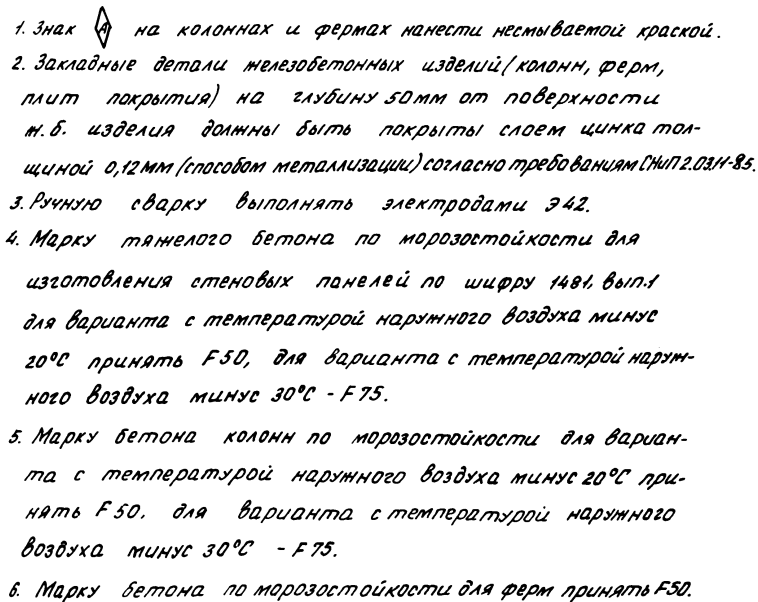 1. Знак А на колоннах и фермах нанести несмываемой краской.
2. Закладные детали железобетонных изделий (колонн, ферм,
плит покрытия) на глубину 50мм от поверхности
ж.б. изделия должны быть покрыты слоем цинка тол-
щиной 0,12мм (способом металлизации) согласно требованиям СНиП 2.03.11-85.
3. Ручную сварку выполнять электродами Э42.
4. Марку тяжелого бетона по морозостойкости для
изготовления стеновых панелей по шифру 1481, вып.1
для варианта с температурой наружного воздуха минус
20°С принять F50, для варианта с температурой наруж-
ного воздуха минус 30°С - F75.
5. Марку бетона колонн по морозостойкости для вариан-
та с температурой наружного воздуха минус 20°С при-
нять F50. для варианта с температурой наружного
воздуха минус 30°С - F75.
6. Марку бетона по морозостойкости для ферм принять F50.